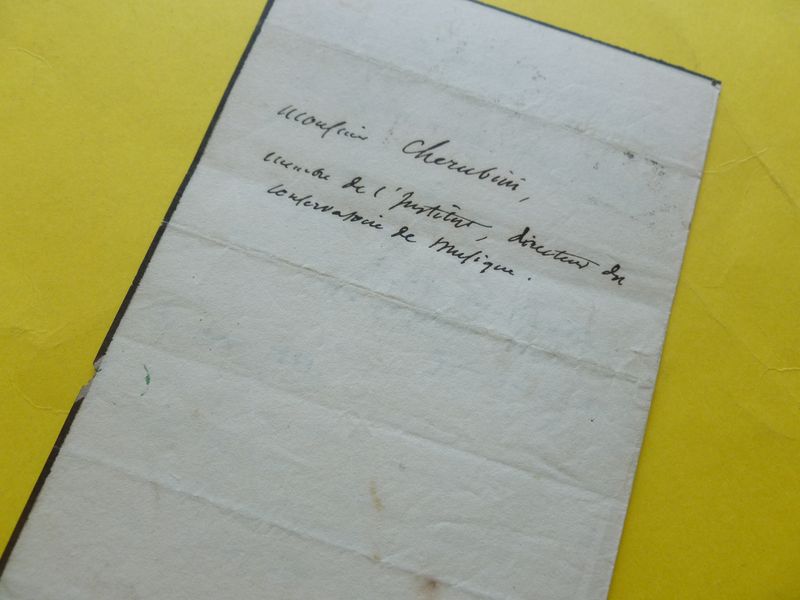 Monsieur Cherubini,
membre de l'Institut, directeur du
Conservatoire de Musique.